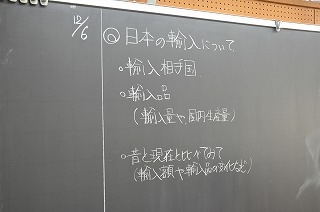 12/6
◎日本の輸入について
・輸入相手国
・輸入品
(輸入量や、国内生産量)
・昔と現在と比べてみて
(輸入額や輸入品の変化など)